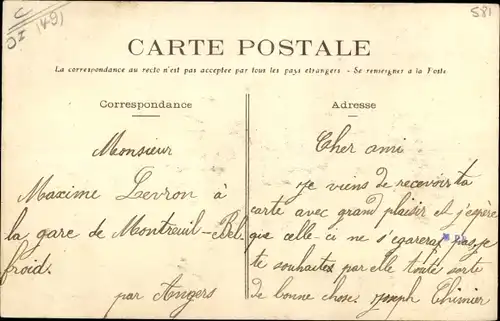 C
OI (49)
581
CARTE POSTALE
La correspondance au recto n'est pas acceptée par tous les pays étrangers - Se renseigner à la Poste
Correspondance
Monsieur
Maxime Levron à
la gare de Montreuil-Bel
froid.
par Angers
Adresse
Cher ami
je viens de recevoir ta
carte avec grand plaisir et j'espère
que celle ci ne s'egarera pas je
te souhaites par elle toute sorte
de bonne chose. Joseph Thimier